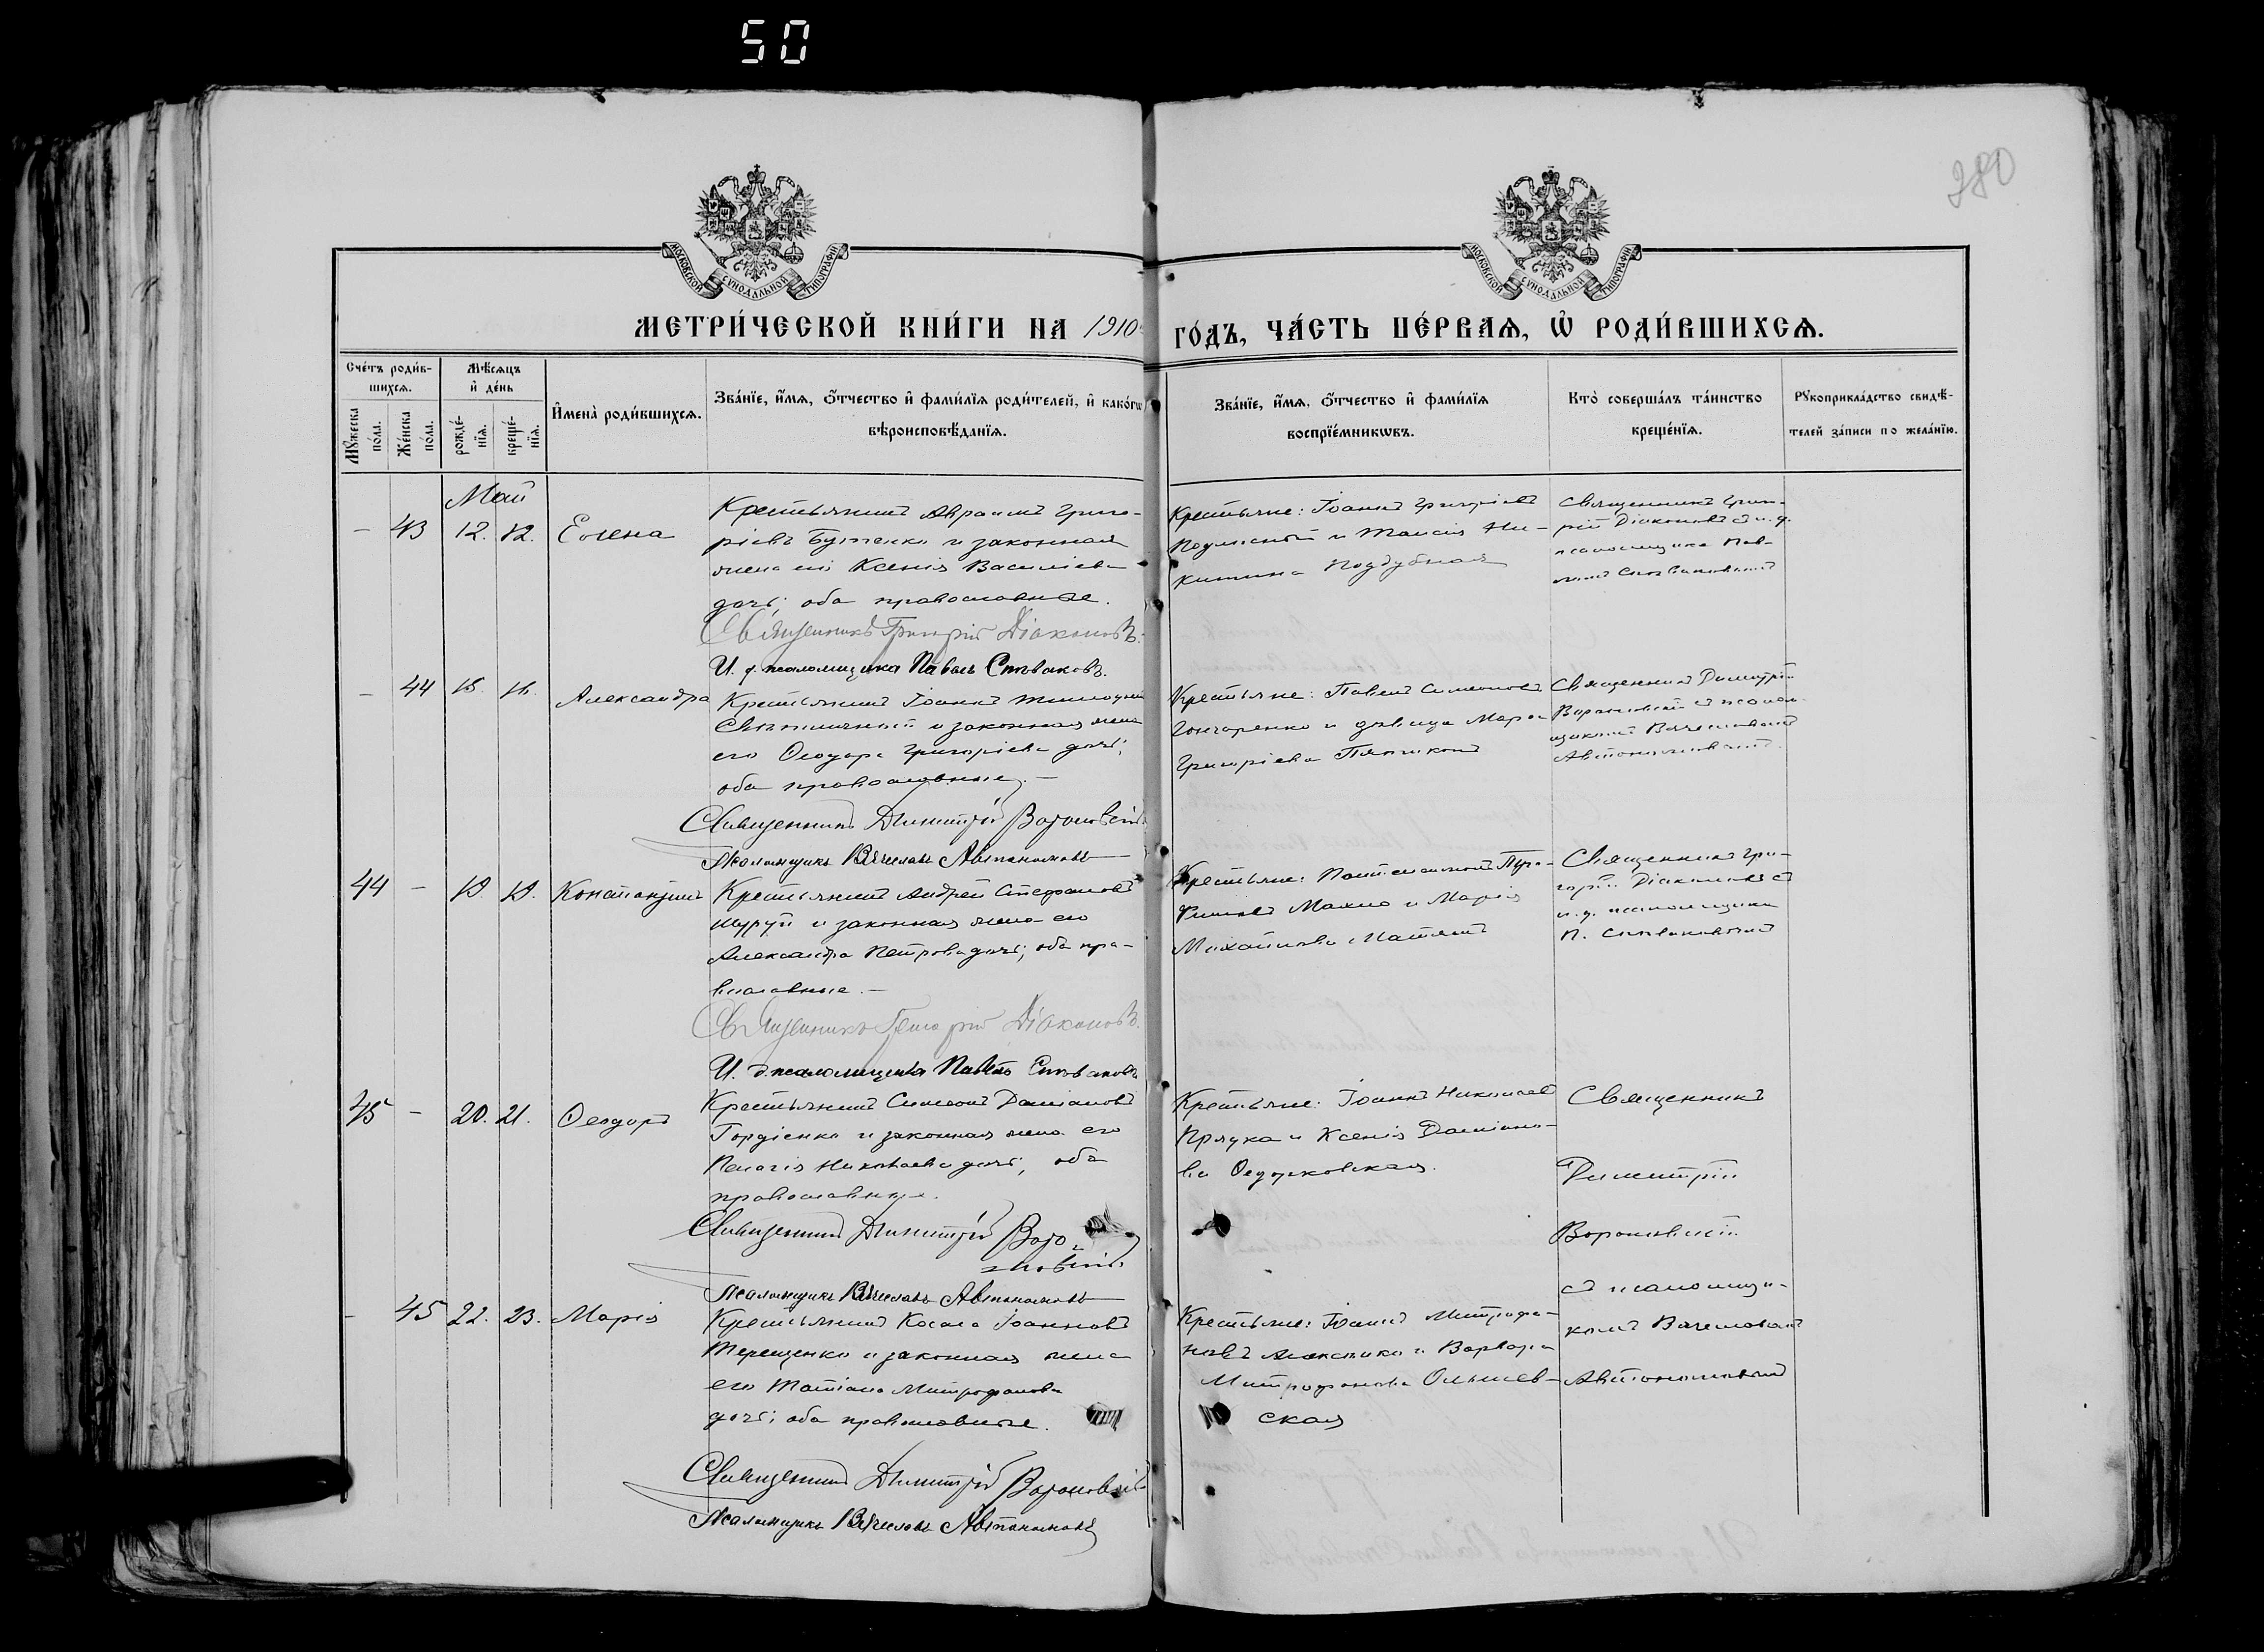 50
280
МОСКОВСКОЙ СѴНОДАЛЬНОЙ ТИПОГРАФІИ
МОСКОВСКОЙ СѴНОДАЛЬНОЙ ТИПОГРАФІИ
МЕТРИ́ЧЕСКОЙ КНИ́ГИ НА 1910
ГО́ДЪ, ЧА́СТЬ ПЕ́РВАѦ, Ѡ҆ РОДИ́ВШИХСѦ.
Сче́тъ роди́в-
шихсѧ.
Мꙋ́жеска
по́ла.
Же́нска
по́ла.
Мѣ́сѧцъ
и҆ де́нь
рожде́-
нїѧ.
креще́-
нїѧ.
И҆мена̀ роди́вшихсѧ.
Зва́нїе, и҆́мѧ, ѻ҆́тчество и҆ фами́лїѧ роди́телей, и҆ како́гѡ
вѣроисповѣ́данїѧ.
Зва́нїе, и҆́мѧ, ѻ҆́тчество и҆ фами́лїѧ
воспрїе́мникѡвъ.
Кто̀ соверша́лъ та́инство
креще́нїѧ.
Рꙋкоприкла́дство свидѣ́-
телей за́писи по жела́нїю.
Май
— 43 12. 12. Елена
Крестьянинъ Авраамъ Григо-
ріевъ Бутенко и законная
жена его Ксенія Василіева
дочь; оба православные.
Священникъ Григорій Діаконовъ.
И. д. псаломщика Павелъ Спѣваковъ.
Крестьяне: Іоаннъ Григоріевъ
и Таисія Ни-
китина Поддубная
Священникъ Григо-
рій Діаконовъ съ и. д.
псаломщика Пав-
ломъ Спѣваковымъ
— 44 15. 16. Александра
Крестьянинъ Іоаннъ
и законная жена
его Ѳеодора Григоріева дочь;
оба православные. —
Священникъ Димитрій Вороновскій
Псаломщикъ Вячеславъ Автономовъ
Крестьяне: Павелъ Симеоновъ
Гончаренко и дѣвица Марѳа
Григоріева
Священникъ Димитрій
Вороновскій съ псалом-
щикомъ Вячеславомъ
Автономовымъ.
44 — 19. 19. Константинъ
Крестьянинъ Андрей Стефановъ
Шуруй и законная жена его
Александра Петрова дочь; оба пра-
вославные. —
Священникъ Григорій Діаконовъ.
И. д. псаломщика Павелъ Спѣваковъ
Крестьяне: Пантелеимонъ Тро-
фимовъ Махно и Марія
Михайлова
Священникъ Гри-
горій Діаконовъ съ
и. д. псаломщика
П. Спѣваковымъ
45 — 20. 21. Ѳеодоръ
Крестьянинъ Симеонъ Даміановъ
Гордіенко и законная жена его
Пелагія Николаева дочь; оба
православные.
Священникъ Димитрій Воро-
новскій
Псаломщикъ Вячеславъ Автономовъ
Крестьяне: Іоаннъ Николаевъ
Пряука и Ксенія Даміано-
ва Ѳедорковская.
Священникъ
Димитрій
Вороновскій
съ псаломщи-
комъ Вячеславомъ
Автономовымъ
— 45 22. 23. Марія
Крестьянинъ Косма Іоанновъ
Терещенко и законная жена
его Татіана Митрофанова
дочь; оба православные.
Священникъ Димитрій Вороновскій
Псаломщикъ Вячеславъ Автономовъ
Крестьяне: Іоаннъ Митрофа-
новъ и Варвара
Митрофанова Ольшев-
ская